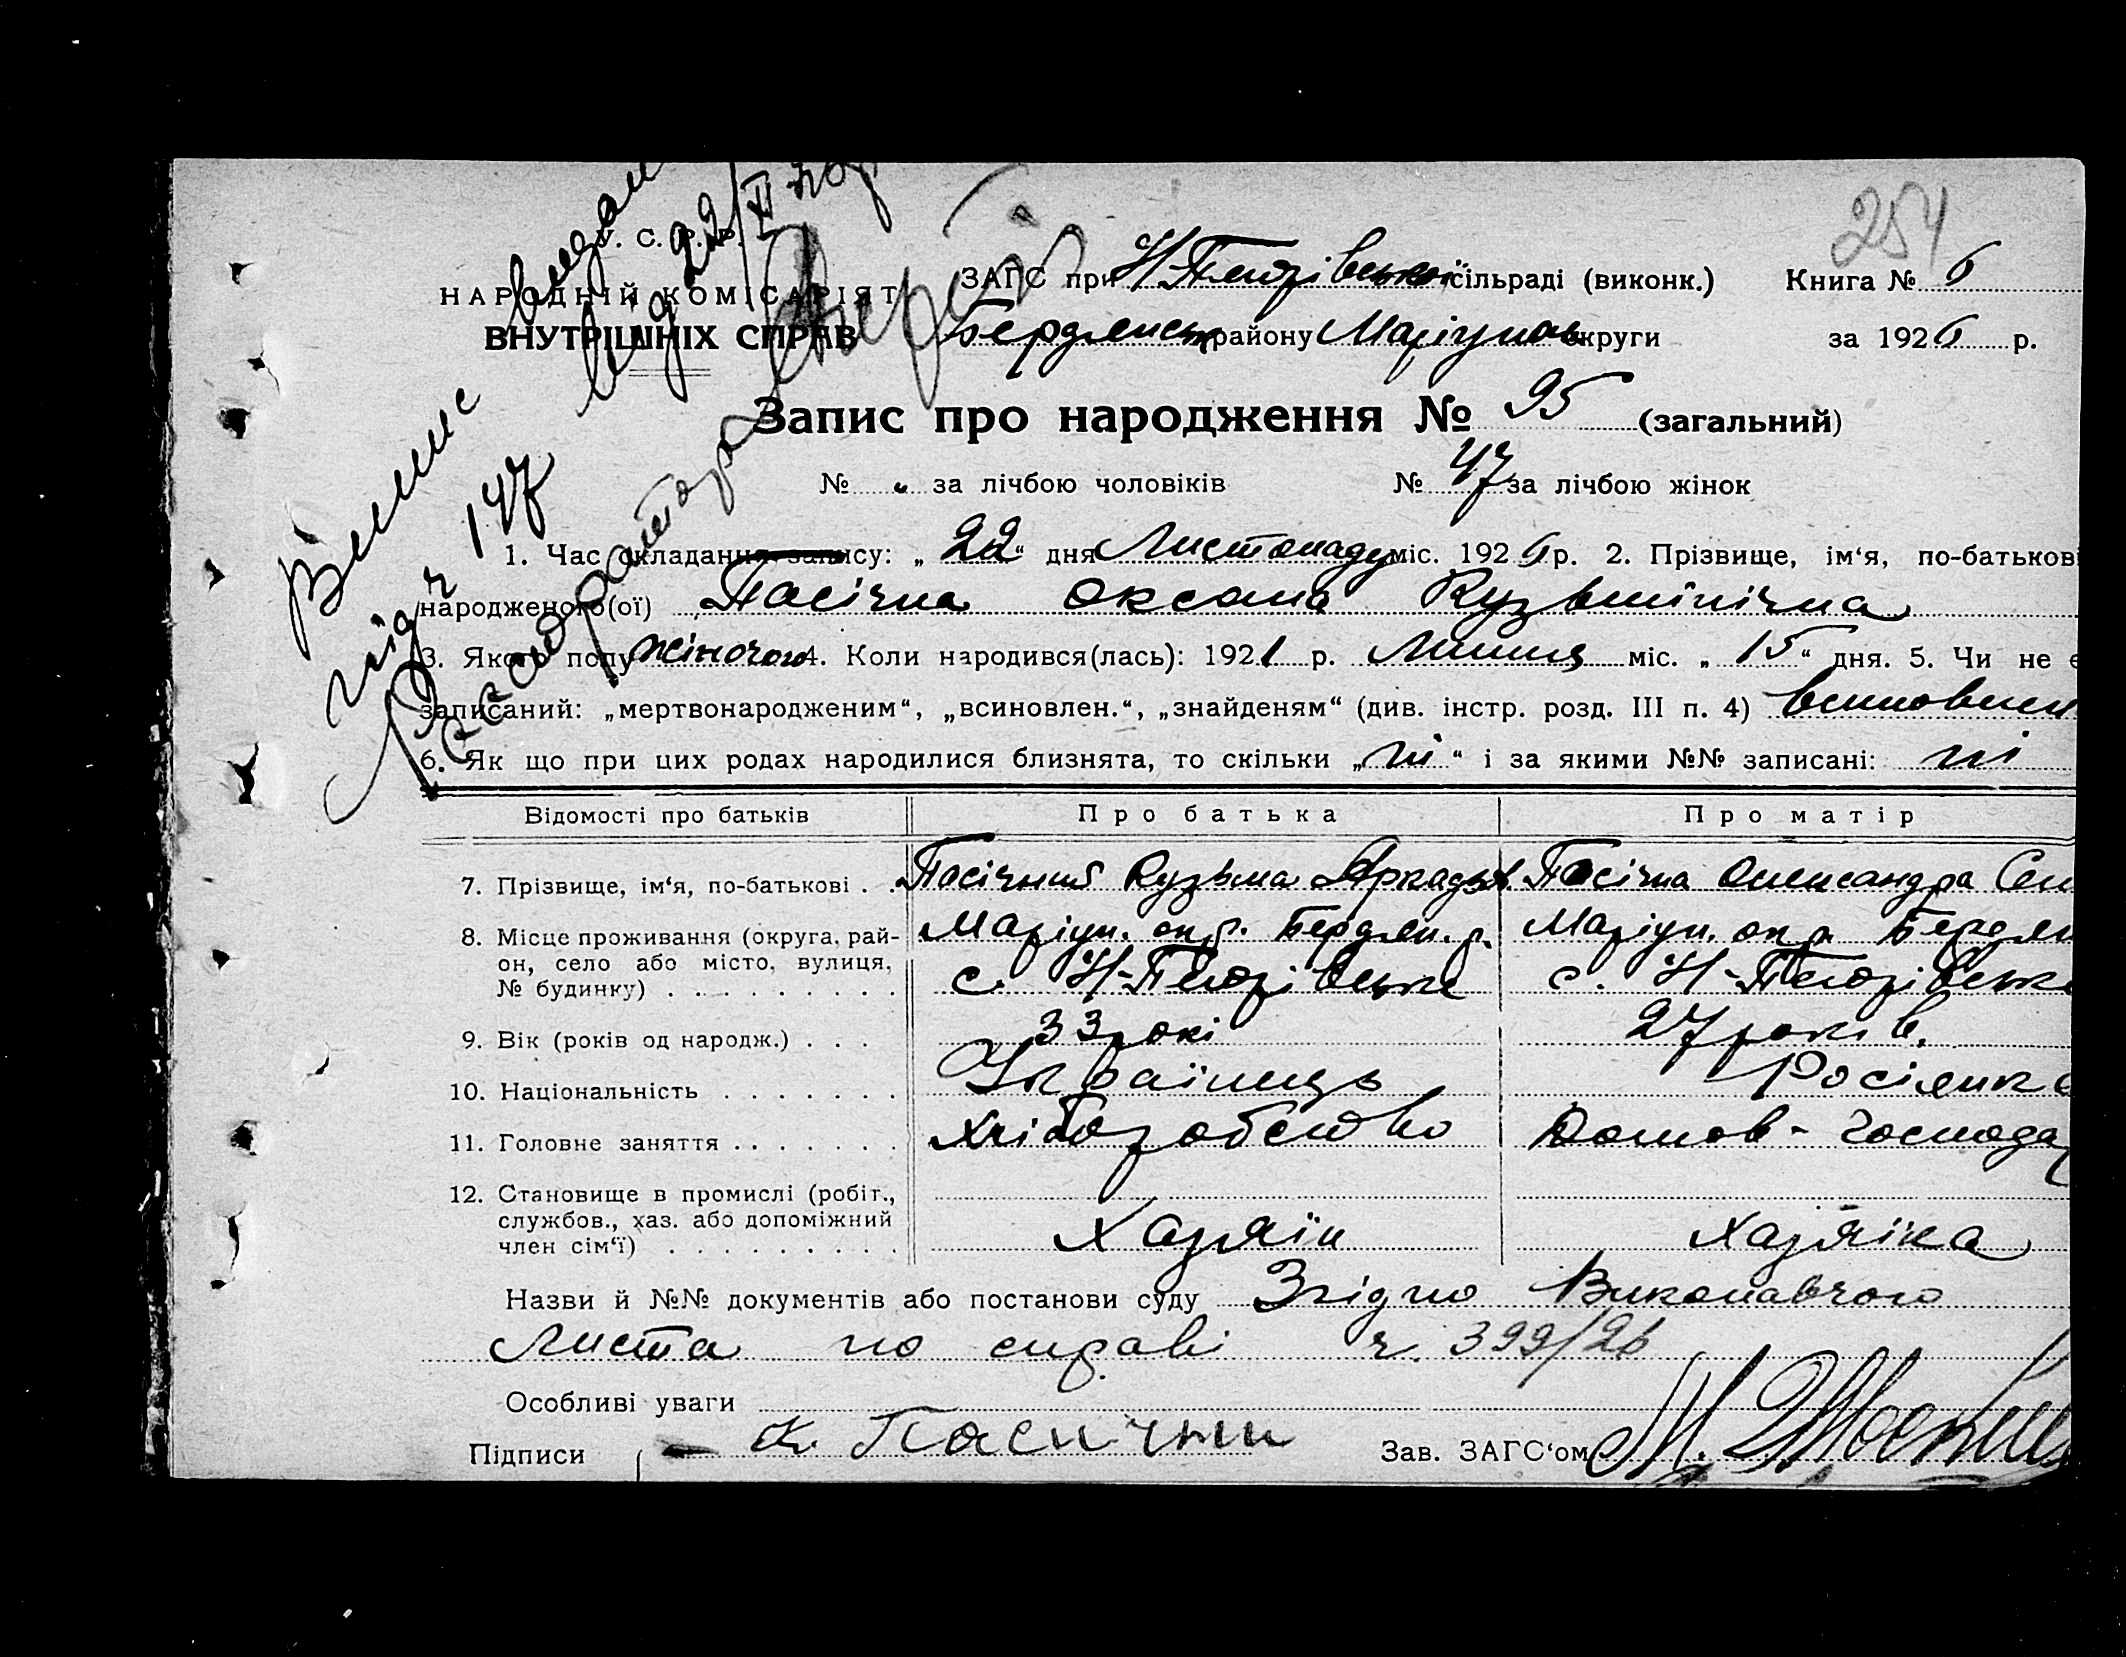 254
У. С. Р. Р.
НАРОДНІЙ КОМІСАРІЯТ
ВНУТРІШНІХ СПРАВ
Віпис видан
під ч 147 від 22/II
ЗАГС при сільраді (виконк.) Книга № 6
Бердянськ району Маріупольськ округи за 1926 р.
Запис про народження № 95 (загальний)
№ „ за лічбою чоловіків № 47 за лічбою жінок
1. Час складання запису: „ 22 “ дня Листопаду міс. 1926 р. 2. Прізвище, ім‘я, по-батькові
народженого(ої) Пасічна Оксана Кузьмінічна
3. Якого полу жіночого 4. Коли народився(лась): 1921 р. Липня міс. „ 15 “ дня. 5. Чи не є
записаний: „мертвонародженим“, „всиновлен.“, „знайденям“ (див. інстр. розд. III п. 4) всиновлен
6. Як що при цих родах народилися близнята, то скільки „ ні “ і за якими №№ записані: ні
Відомості про батьків Про батька Про матір
7. Прізвище, ім‘я, по-батькові . . Пасічний Кузьма Аркадьев. Пасічна Олександра Сем
8. Місце проживання (округа, рай- Маріуп. окр. Бердян. р. Маріуп. окр. Бердян
он, село або місто, вулиця, с. Н-Петрівське с. Н-Петрівське
№ будинку) . . . . . . . . .
9. Вік (років од народж.) . . . 33 рокі 27 років.
10. Національність . . . . . . . Українець Росіянка
11. Головне заняття . . . . . . . Хліборобство Домов-господар
12. Становище в промислі (робіт.,
службов., хаз. або допоміжний Хазяїн Хазяїка
член сім‘ї) . . . . . . . . .
Назви й №№ документів або постанови суду Згідно Виконавчого
Листа по справі ч. 399/26
Особливі уваги
Підписи К. Пасични Зав. ЗАГС‘ом